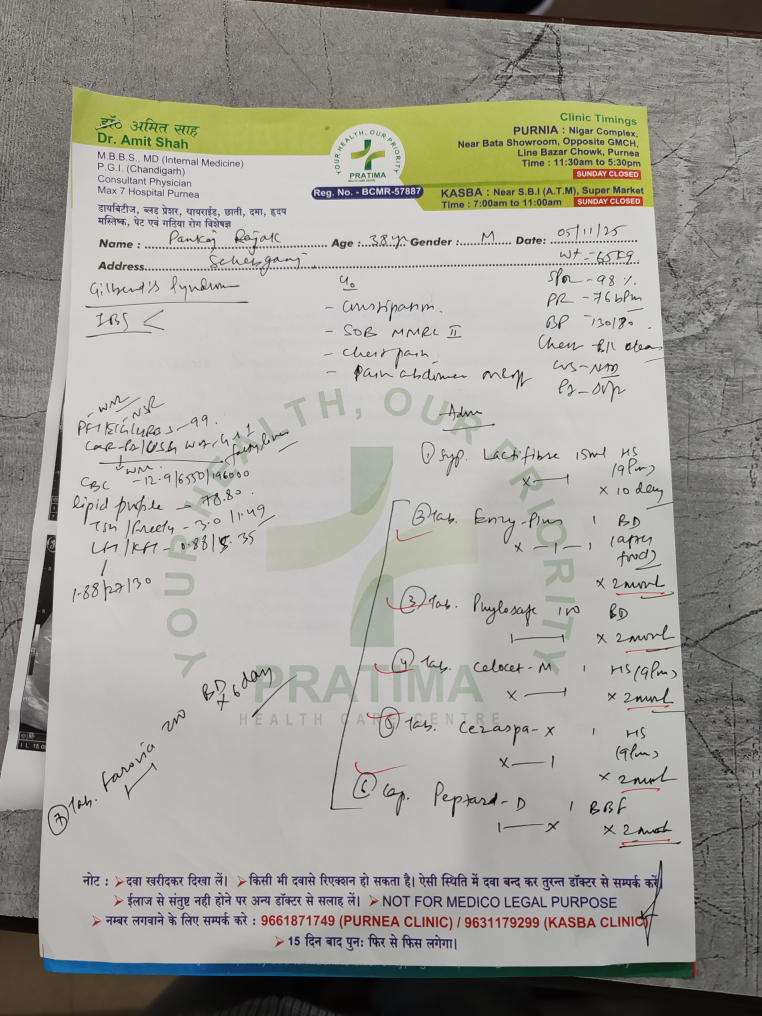 डॉ० अमित साह
Dr. Amit Shah
M.B.B.S., MD (Internal Medicine)
P.G.I. (Chandigarh)
Consultant Physician
Max 7 Hospital Purnea
डायबिटीज, ब्लड प्रेशर, थायराईड, छाती, दमा, हृदय
मस्तिष्क, पेट एवं गठिया रोग विशेषज्ञ
YOUR HEALTH, OUR PRIORITY
PRATIMA
HEALTH CARE CENTRE
Reg. No. - BCMR-57887
Clinic Timings
PURNIA : Nigar Complex,
Near Bata Showroom, Opposite GMCH,
Line Bazar Chowk, Purnea
Time : 11:30am to 5:30pm
SUNDAY CLOSED
KASBA : Near S.B.I (A.T.M), Super Market
Time : 7:00am to 11:00am SUNDAY CLOSED
Name : Pankaj Rajak Age : 38 yr Gender : M Date: 05/11/25
Address
Wt - 65 kg
Gilbert's Syndrome
IBS <
c/o
- Constipation
- SOB MMRC II
- Chest pain
- Pain abdomen on & off
SPO2 - 98 %
PR - 76 bpm
BP - 130/80
Chest - B/L clear
CVS - NAD
WNL NSR
- 99
CBC - 12.9/6550/196000
lipid profile - 78.80
TSH / - 3.0 / 1.49
LFT / KFT - 0.88 / 5.35
1.88/27/30
Adv
① Syp. Lactifibre 15ml HS
(9pm)
x 10 day
② Tab. Enzy-Plus 1 BD
(after
food)
x 2 month
③ Tab. Phylosafe 100 BD
x 2 month
④ Tab. Celocet-M 1 HS (9pm)
x 2 month
⑤ Tab. Cezaspa-X 1 HS
(9pm)
x 2 month
⑥ Cap. Peptard-D 1 BBF
x 2 month
⑦ Tab. Farovia 200 BD x 6 day
YOUR HEALTH, OUR PRIORITY
PRATIMA
HEALTH CARE CENTRE
नोट : ➤ दवा खरीदकर दिखा लें। ➤ किसी भी दवासे रिएक्शन हो सकता है। ऐसी स्थिति में दवा बन्द कर तुरन्त डॉक्टर से सम्पर्क करें।
➤ ईलाज से संतुष्ट नही होने पर अन्य डॉक्टर से सलाह लें। ➤ NOT FOR MEDICO LEGAL PURPOSE
➤ नम्बर लगवाने के लिए सम्पर्क करे : 9661871749 (PURNEA CLINIC) / 9631179299 (KASBA CLINIC)
➤ 15 दिन बाद पुनः फिर से फिस लगेगा।